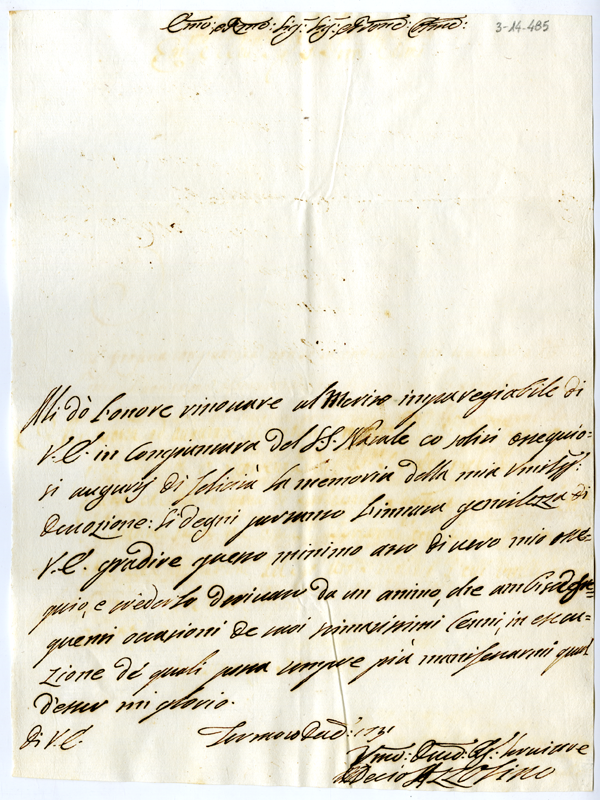 Emo: e Rmo: Sig: Sig: e Prone: Colmo:
3-14-485
Mi dò l'onore rinovare al Merito impareggiabile di
V.E. in Congiuntura del SS. Natale co soliti ossequio-
si augurij di felicità la memoria della mia Umiliss:
devozione: Si degni pertanto l'innata gentilezza di
V.E. gradire questo minimo atto di vero mio osse-
quio, e crederlo derivato da un animo, che ambisce fre=
quenti occasioni de suoi stimatissimi Cenni, in esecu-
zione de quali possa sempre più manifestarmi qual
d'esser mi glorio.
di V.E.
Fermo 1731
Umo: Devmo: Servitore
Decio Azzolino